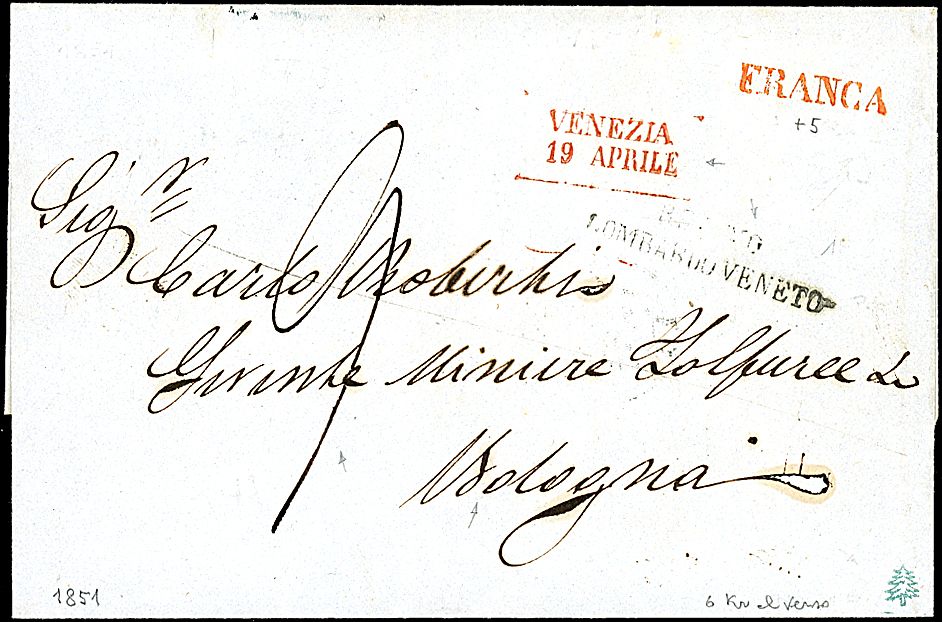 FRANCA
+5
VENEZIA
19 APRILE
LOMBARDO VENETO
Sig.r
Carlo Robertis
Gerente Miniere Zolfuree di
Bologna
1851
6 Kr al verso